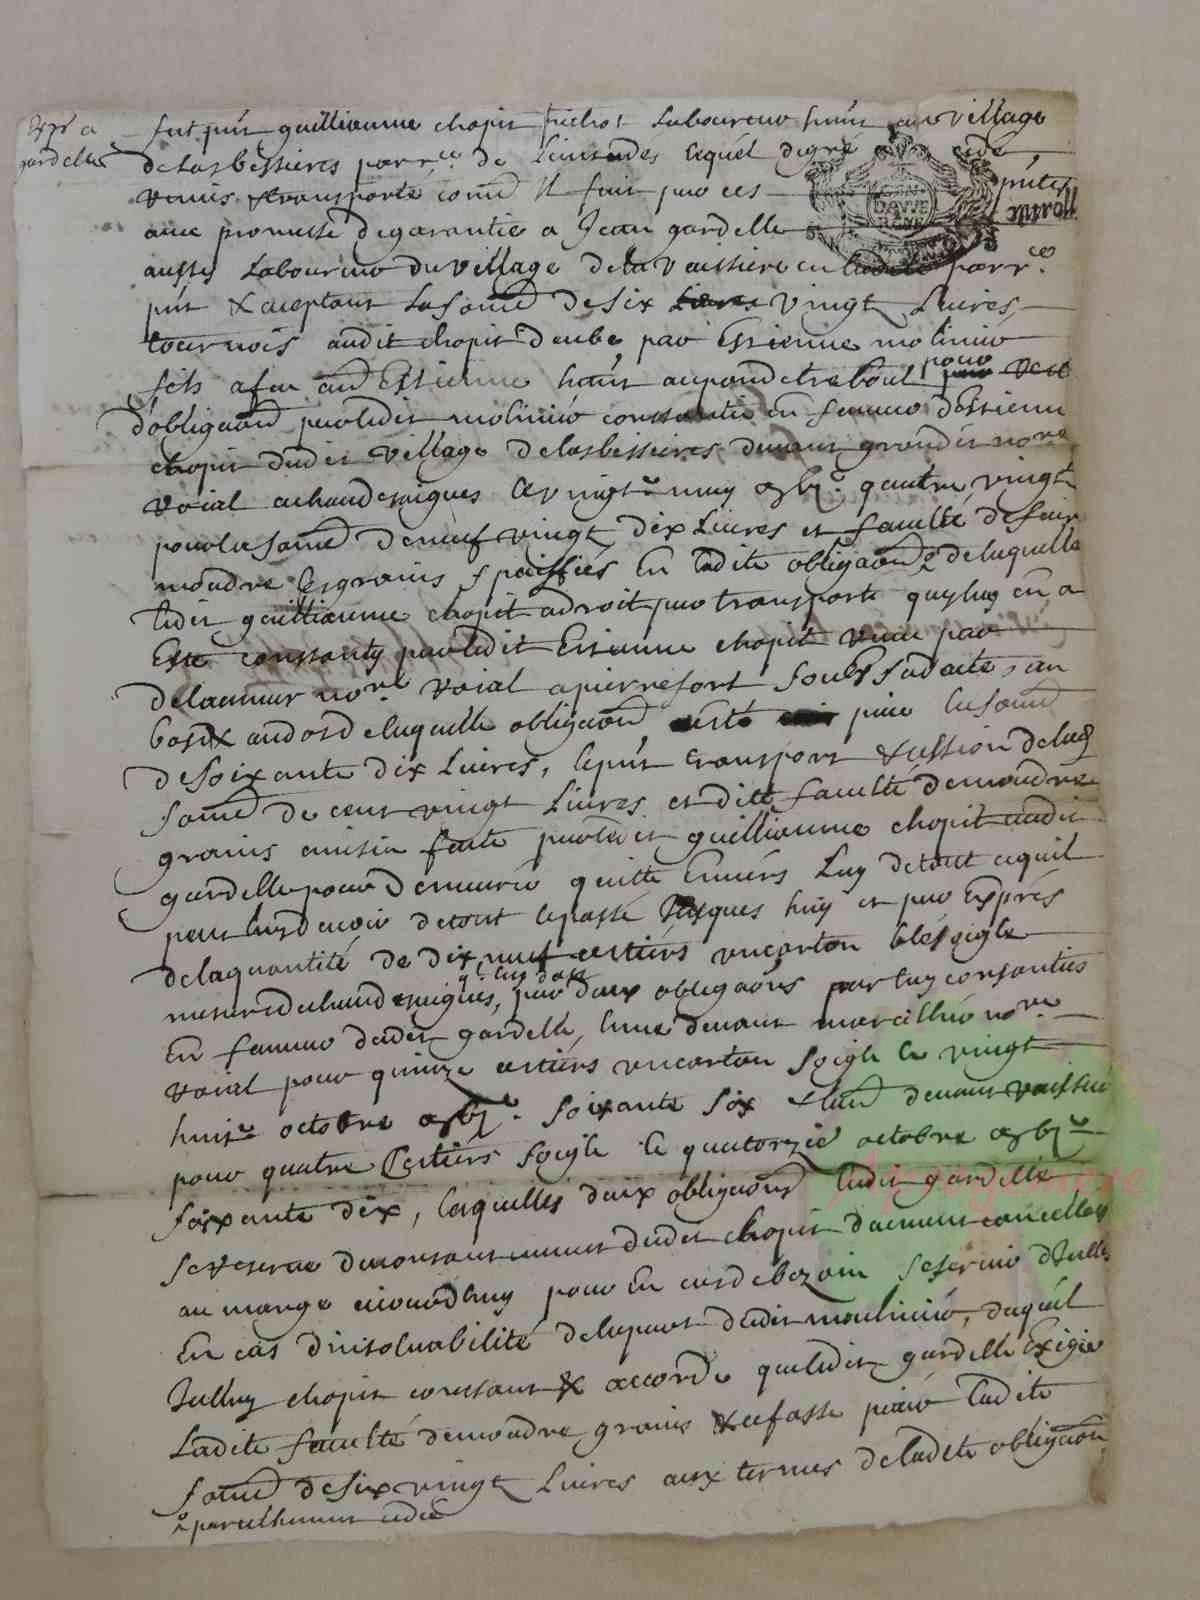 Exp a
gardelle
fut pnt guilliaume chopit laboureur hant au village
de lasbessieres parr.ce de lieutades lequel de gré a cedé
remis transporté comme Il fait par ces pntes
avec promesse de garantie a Jean gardelle
aussy laboureur du village de la Vaissiere en ladite parr.ce
pnt & aceptant la some de six vingt livres
tournois audit chopit deube par Estienne molinier
fils a feu Estienne hant au pour
d'obligaon par ledit molinier consantie en faveur d'Estienne
chopit dudit village de lasbessieres devant grandet no.re
roial a chaudesaigues le vingt quatre vingt
pour la some de neuf vingt dix livres et faculté de faire
moudre les grains speciffiés En ladite obligaon de laquelle
ledit guilliaume chopit a droit par transport quy luy en a
Esté consanty par ledit Estienne chopit receu par
delamur no.re roial a pierrefort soubs sa datte, an
bas & au dos de laquelle obligaon, pour la some
de soixante dix livres, le pnt transport & cession de lad
some de cent vingt livres et dite faculté de moudre
grains ainsin faite par ledit guilliaume chopit audit
gardelle pour demeurer quitte Envers luy de tout ce quil
peut luy devoir de tout le passé Jusques huy et par Exprés
de la quantité de dix neuf cestiers un carton bled seigle
mesure de chaudesaigues, q.l luy doit par deux obligaons par luy consanties
En faveur dudit gardelle, lune devant marcillié no.re
roial pour quinze cestiers un carton seigle le vingt
huit octobre soixante six & lautre devant
pour quatre Cestiers seigle le quatorzie octobre
soixante dix, lesquelles deux obligaons ledit gardelle
se reserve demeurant dudit chopit
au marge aujourdhuy pour En cas de bezoin se servir d'Icelles
En cas d'insolvabilité de la part dudit moulinié, duquel
Icelluy chopit consant & accorde que ledit gardelle Exigie
ladite faculté de moudre grains & se fasse paier ladite
some de six vingt livres aux termes de ladite obligaon